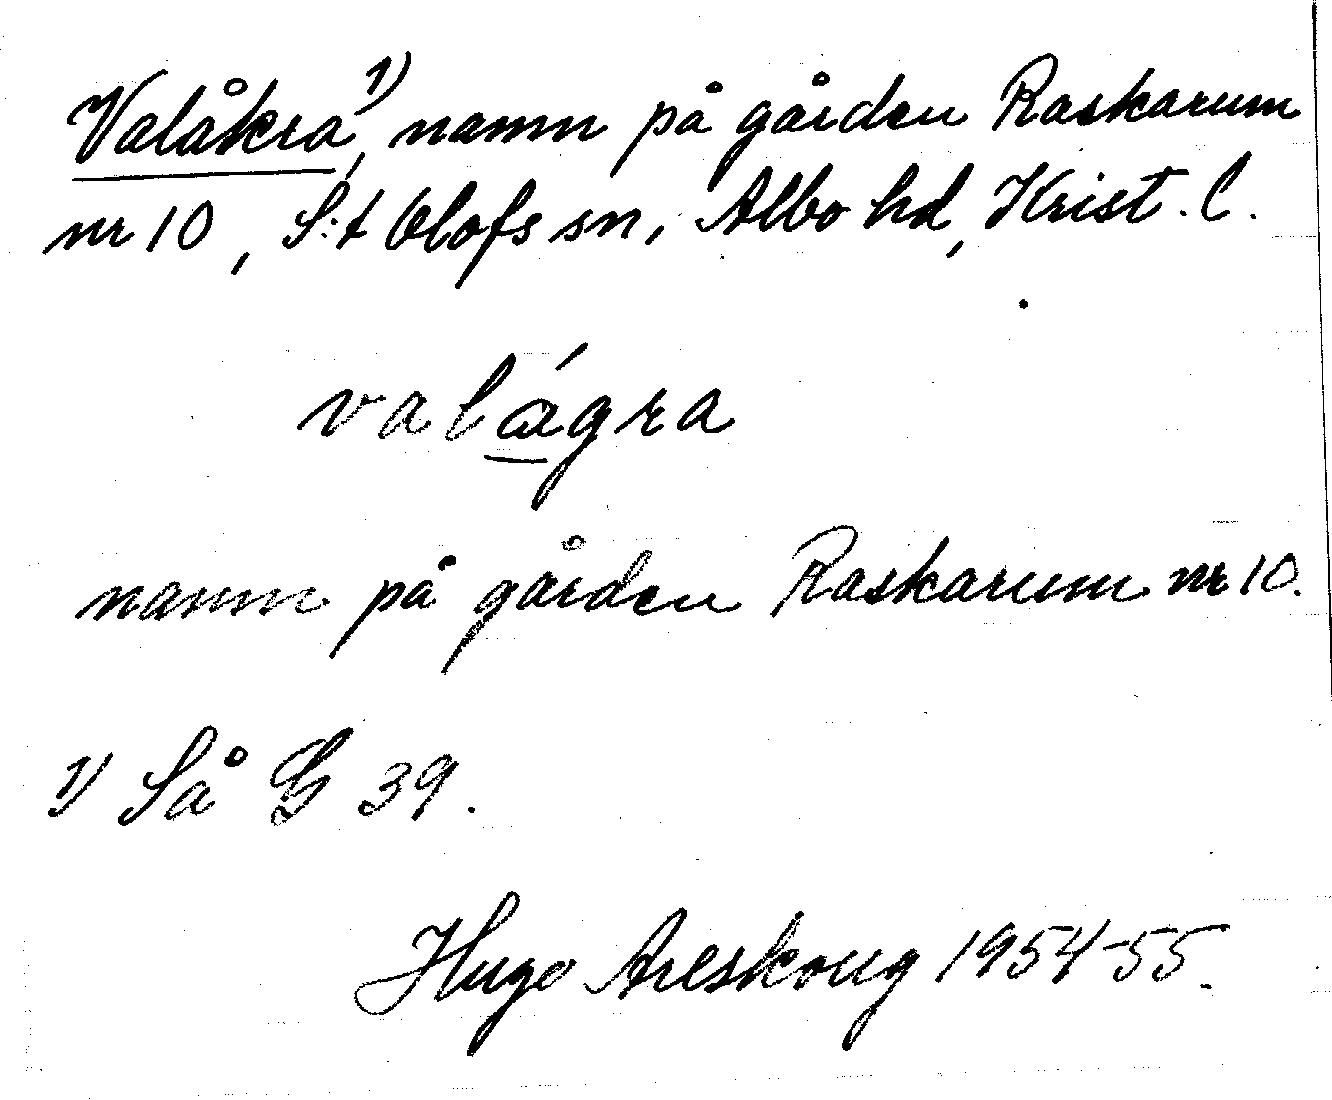 Valåkra 1), namn på gården Raskarum
nr 10, S:t Olofs sn, Albo hd, Krist. l.
valágra
namn på gården Raskarum nr 10.
1) Så G 39.
Hugo Areskoug 1954-55.